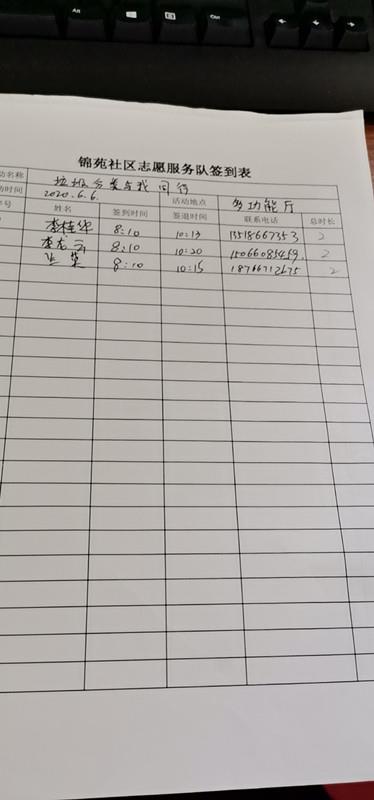 Alt
Ctrl
锦苑社区志愿服务队签到表
动名称 垃圾分类与我同行
动时间 2020.6.6. 活动地点 多功能厅
号 姓名 签到时间 签退时间 联系电话 总时长
李桂华 8:10 10:13 13518667353 2
李龙云 8:10 10:20 15066085459. 2
8:10 10:15 18766712675 2